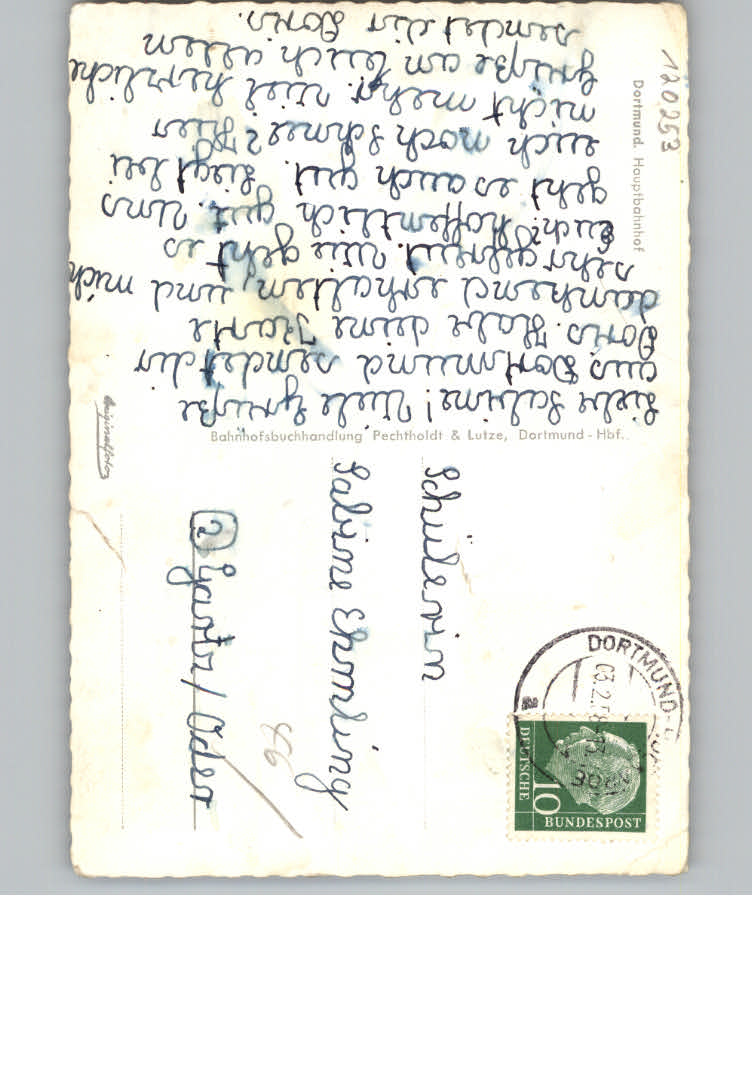 Liebe Sabine! Viele Grüße
aus Dortmund sendet dir
Doris. Habe deine Karte
dankend erhalten, und mich
sehr gefreut. Wie geht es
Euch? Hoffentlich gut. Uns
geht es auch gut. Liegt bei
euch noch Schnee? Hier
nicht mehr. Viel herzliche
Grüße an Euch allen
sendet dir Doris.
Dortmund. Hauptbahnhof
120253
Bahnhofsbuchhandlung Pechtholdt & Lutze, Dortmund - Hbf.
Originalfoto
Schülerin
Sabine Ehmling
(2) Gartz / Oder
DORTMUND
DEUTSCHE
10
BUNDESPOST